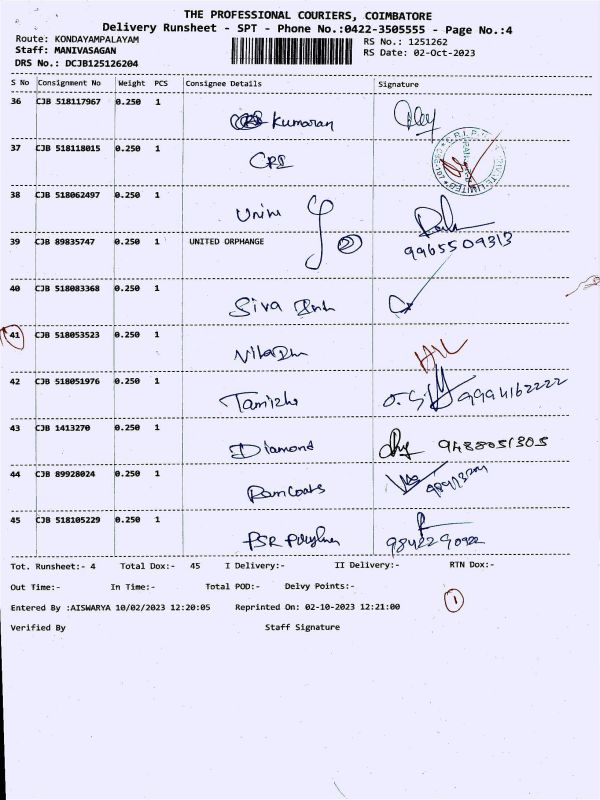 THE PROFESSIONAL COURIERS, COIMBATORE
Delivery Runsheet - SPT - Phone No.:0422-3505555 - Page No.:4
Route: KONDAYAMPALAYAM
RS No.: 1251262
Staff: MANIVASAGAN
RS Date: 02-Oct-2023
DRS No.: DCJB125126204
S No Consignment No Weight PCS Consignee Details Signature
36 CJB 518117967 0.250 1
Kumaran
37 CJB 518118015 0.250 1
CRI
38 CJB 518062497 0.250 1
39 CJB 89835747 0.250 1 UNITED ORPHANGE
2
9965509313
40 CJB 518083368 0.250 1
Siva
41 CJB 518053523 0.250 1
42 CJB 518051976 0.250 1
9994162222
43 CJB 1413270 0.250 1
Diamond 9488051305
44 CJB 89928024 0.250 1
45 CJB 518105229 0.250 1
PSR
9842290922
Tot. Runsheet:- 4 Total Dox:- 45 I Delivery:- II Delivery:- RTN Dox:-
Out Time:- In Time:- Total POD:- Delvy Points:-
Entered By :AISWARYA 10/02/2023 12:20:05 Reprinted On: 02-10-2023 12:21:00
1
Verified By Staff Signature